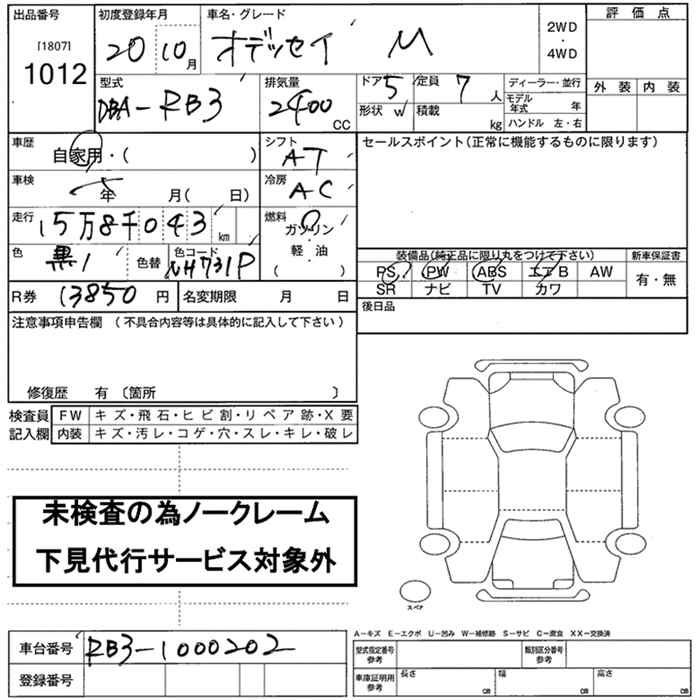 出品番号 [1807] 1012
初度登録年月 20 10月
車名・グレード オデッセイ M
2WD・4WD
評価点
外装 内装
型式 DBA-RB3
排気量 2400 CC
ドア 5 定員 7 人
形状 W 積載 kg
ディーラー・並行
モデル年式 年
ハンドル 左・右
車歴 自家用・( )
シフト AT
セールスポイント(正常に機能するものに限ります)
車検 年 月( 日)
冷房 AC
走行 15万8千043 km
燃料 ガソリン 軽・油 ( )
色 黒 色替 色コード NH731P
装備品(純正品に限り丸をつけて下さい) 新車保証書
PS PW ABS エアB AW 有・無
SR ナビ TV カワ
R券 13850 円 名変期限 月 日
後日品
注意事項申告欄 (不具合内容等は具体的に記入して下さい)
修復歴 有 〔箇所 〕
検査員記入欄
FW キズ・飛石・ヒビ割・リペア跡・X要
内装 キズ・汚レ・コゲ・穴・スレ・キレ・破レ
未検査の為ノークレーム
下見代行サービス対象外
スペア
A-キズ E-エクボ U-凹み W-補修跡 S-サビ C-腐食 XX-交換済
車台番号 RB3-1000202
型式指定番号 参考 類別区分番号 参考
登録番号
車庫証明用 参考 長さ cm 幅 cm 高さ cm